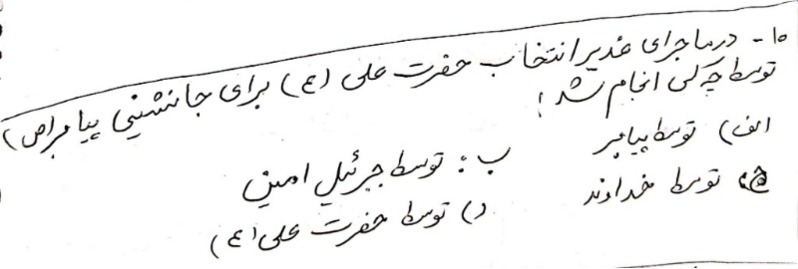 ۱۰- در ماجرای غدیر انتخاب حضرت علی (ع) برای جانشینی پیامبر(ص)
توسط چه کسی انجام شد؟
الف) توسط پیامبر ب: توسط جبرئیل امین
ج: توسط خداوند د) توسط حضرت علی (ع)